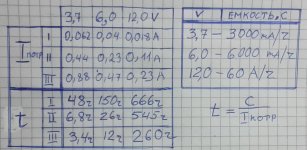 3,7 6,0 12,0 V
Iпотр
I 0,062 0,04 0,018А
II 0,44 0,23 0,11А
III 0,88 0,47 0,23А
t
I 48ч 150ч 666ч
II 6,8ч 26ч 545ч
III 3,4ч 12ч 260ч
V ЕМКОСТЬ, С
3,7 - 3000 mА/ч
6,0 - 6000 mА/ч
12,0 - 60 А/ч
t = C / Iпотр